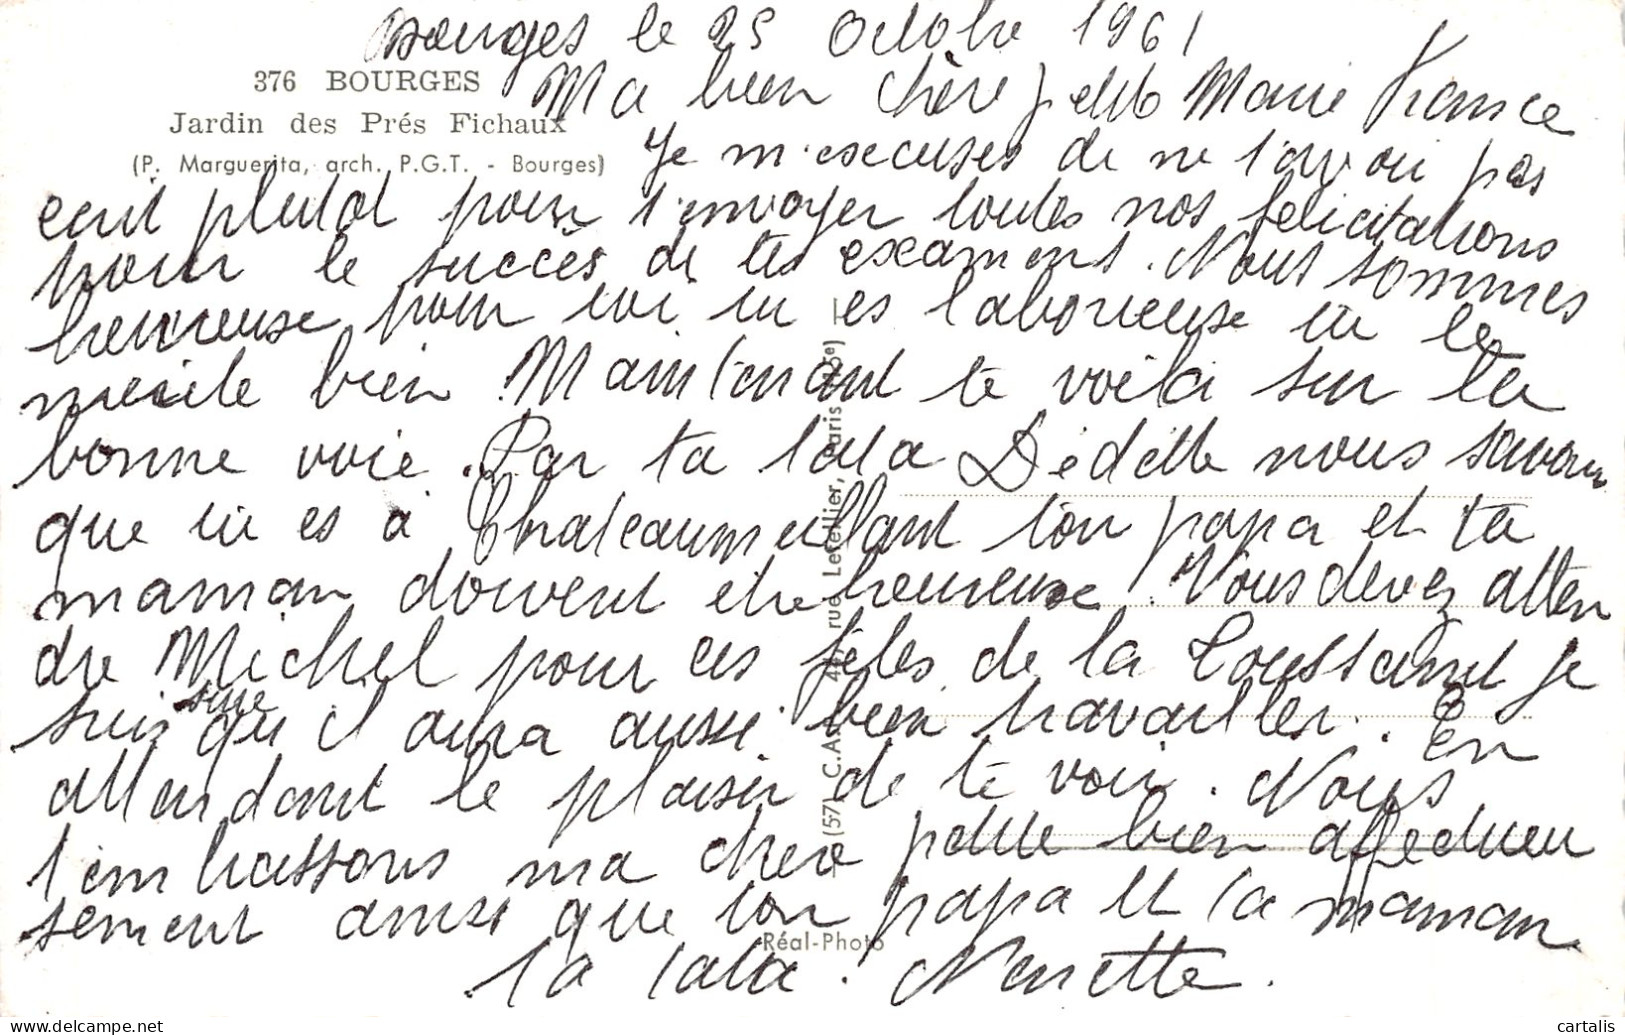 Bourges le 25 Octobre 1961
376 BOURGES
Jardin des Prés Fichaux
(P. Marguerita, arch. P.G.T. - Bourges)
Ma bien chère petite Marie France
Je m'escuses de ne t'avoir pas
ecrit plutot pour t'envoyer toutes nos félicitations
pour le succès de tes examens. Nous sommes
heureuse pour toi tu es laborieuse tu le
mérite bien. Maintenant te voila sur la
bonne voie. Par ta tata Dédette nous savons
que tu es a Chateaumeillant ton papa et ta
maman doivent etre heureuse. Vous devez atten
dre Michel pour ces fêtes de la Toussaint je
suis sure qu il aura aussi bien travailler. En
attendant le plaisir de te voir. Nous
t'embrassons ma chere petite bien affectueu
sement ainsi que ton papa et ta maman
Ta tata. Nenette.
(57) C.A.P. rue Letellier, Paris
Réal-Photo
cartalis